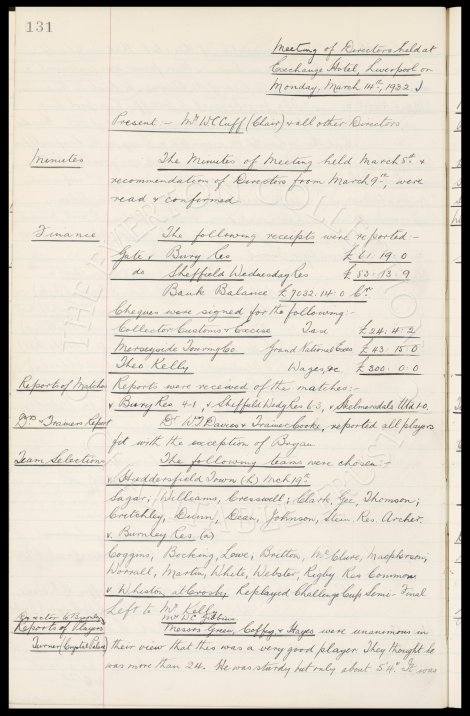 131
Meeting of Directors held at
Exchange Hotel, Liverpool on
Monday, March 14th, 1932
Present - Mr W C Cuff (Chair) & all other Directors
Minutes
The Minutes of Meeting held March 8th &
recommendation of Directors from March 9th, were
read & confirmed
Finance
The following receipts were reported -
Gate v Bury Res £61 19. 0
do Sheffield Wednesday Res £83. 13. 9
Bank Balance £7032. 14. 0 Cr.
Cheques were signed for the following:-
Collector Customs & Excise Tax £24. 4. 2
Merseyside Touring Co. Grand National Coaches £43. 15. 0
Theo Kelly Wages, &c £300. 0. 0
Reports of Matches
Reports were received of the matches:-
v Bury Res. 4-1, v Sheffield Wedy Res 6-3, v Skelmersdale Utd 1-0.
Drs & Trainers Report
Dr Wm Davies & Trainer Cooke, reported all players
fit with the exception of Bryan
Team Selection
The following teams were chosen:-
v Huddersfield Town (h) Mch 19th
Sagar; Williams, Cresswell; Clark, Gee, Thomson;
Critchley, Dunn, Dean, Johnson, Stein Res. Archer.
v. Burnley Res. (a)
Coggins, Bocking, Lowe, Britton, McClure, Macpherson,
Worrall, Martin, White, Webster, Rigby Res Common
v Whiston at Crosby Replayed Challenge Cup Semi-Final
Left to Mr Kelly
Director to Burnley
Mr W C Gibbins
Reports of Players
Turner (Crystal Palace)
Messrs Green, Coffey & Hayes were unanimous in
their view that this was a very good player. They thought he
was more than 24. He was sturdy but only about 5'4". It was
THE EVERTON COLLECTION